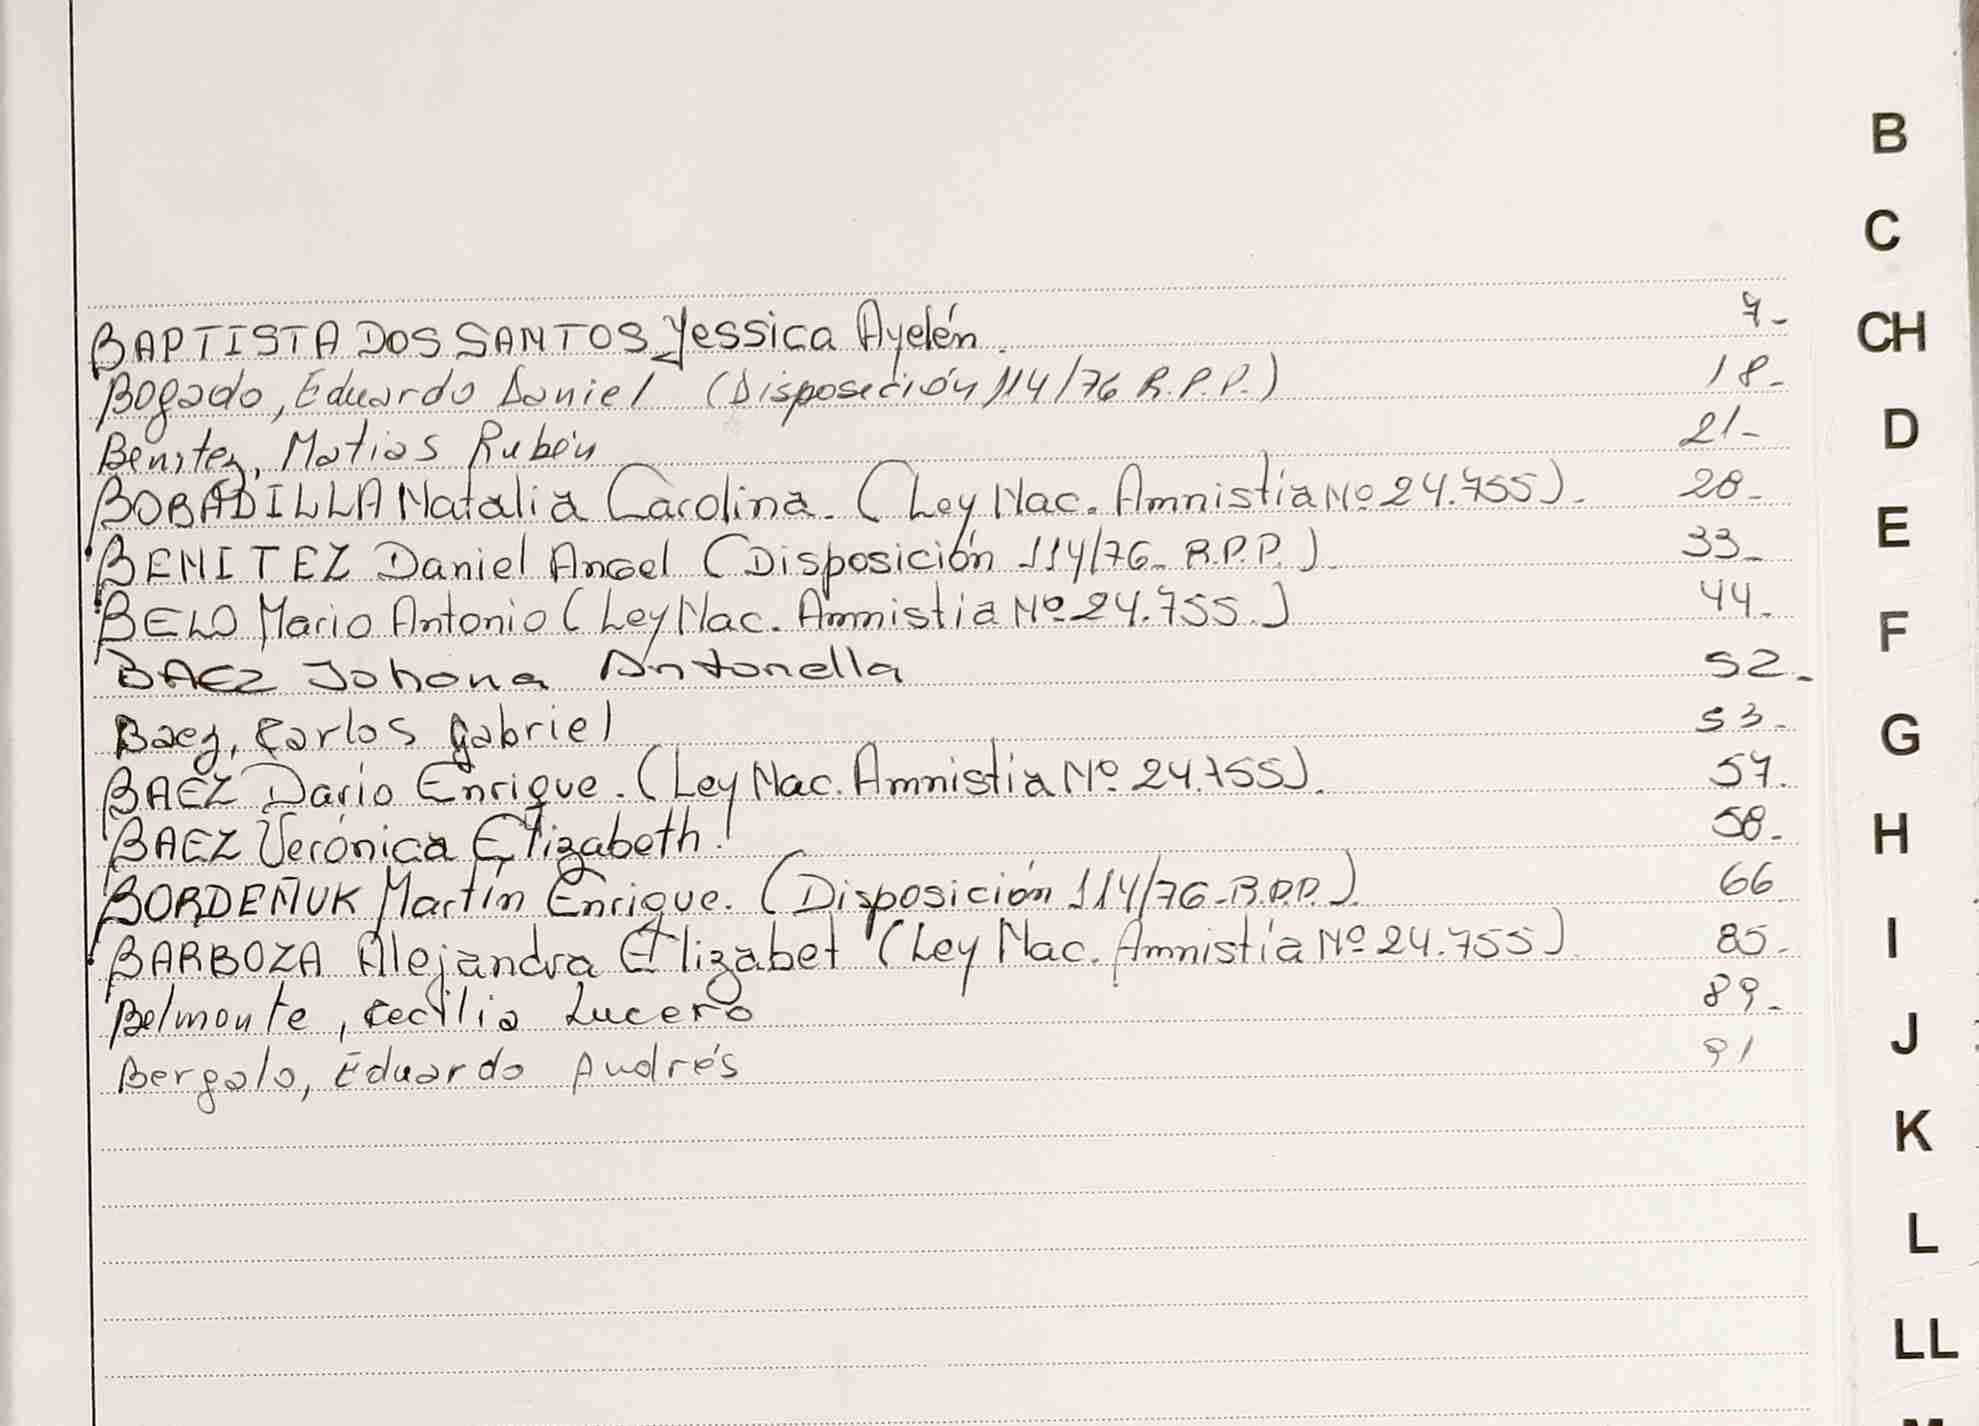 BAPTISTA DOS SANTOS Yessica Ayelén. 7-
Bogado, Eduardo Daniel (Disposición 114/76 R.P.P.) 18-
Benitez, Matias Rubén 21-
BOBADILLA Natalia Carolina. (Ley Nac. Amnistia Nº 24.755). 28-
BENITEZ Daniel Angel (Disposición 114/76- R.P.P.). 33-
BELO Mario Antonio (Ley Nac. Amnistia Nº 24.755.) 44-
BAEZ Johona Antonella 52-
Baez, Carlos Gabriel 53-
BAEZ Dario Enrique. (Ley Nac. Amnistia Nº 24.755). 57-
BAEZ Verónica Elizabeth. 58-
BORDEÑUK Martín Enrique. (Disposición 114/76-R.P.P.). 66
BARBOZA Alejandra Elizabet (Ley Nac. Amnistía Nº 24.755) 85-
Belmonte, Cecilia Lucero 89-
Bergalo, Eduardo Andrés 91
B
C
CH
D
E
F
G
H
I
J
K
L
LL